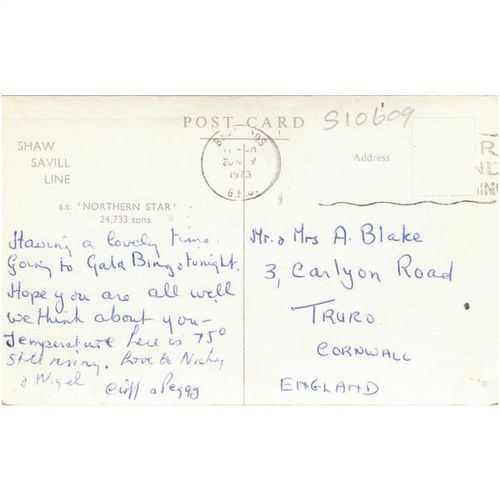 POST CARD
S10609
SHAW
SAVILL
LINE
Address
s.s. 'NORTHERN STAR'
24,733 tons
1973
G.P.O.
Having a lovely time.
Going to Gala Bingo tonight.
Hope you are all well
we think about you -
Temperature here is 75°
still rising. Love to Nicky
& Nigel
Cliff & Peggy
Mr. & Mrs A. Blake
3, Carlyon Road
TRURO
CORNWALL
ENGLAND